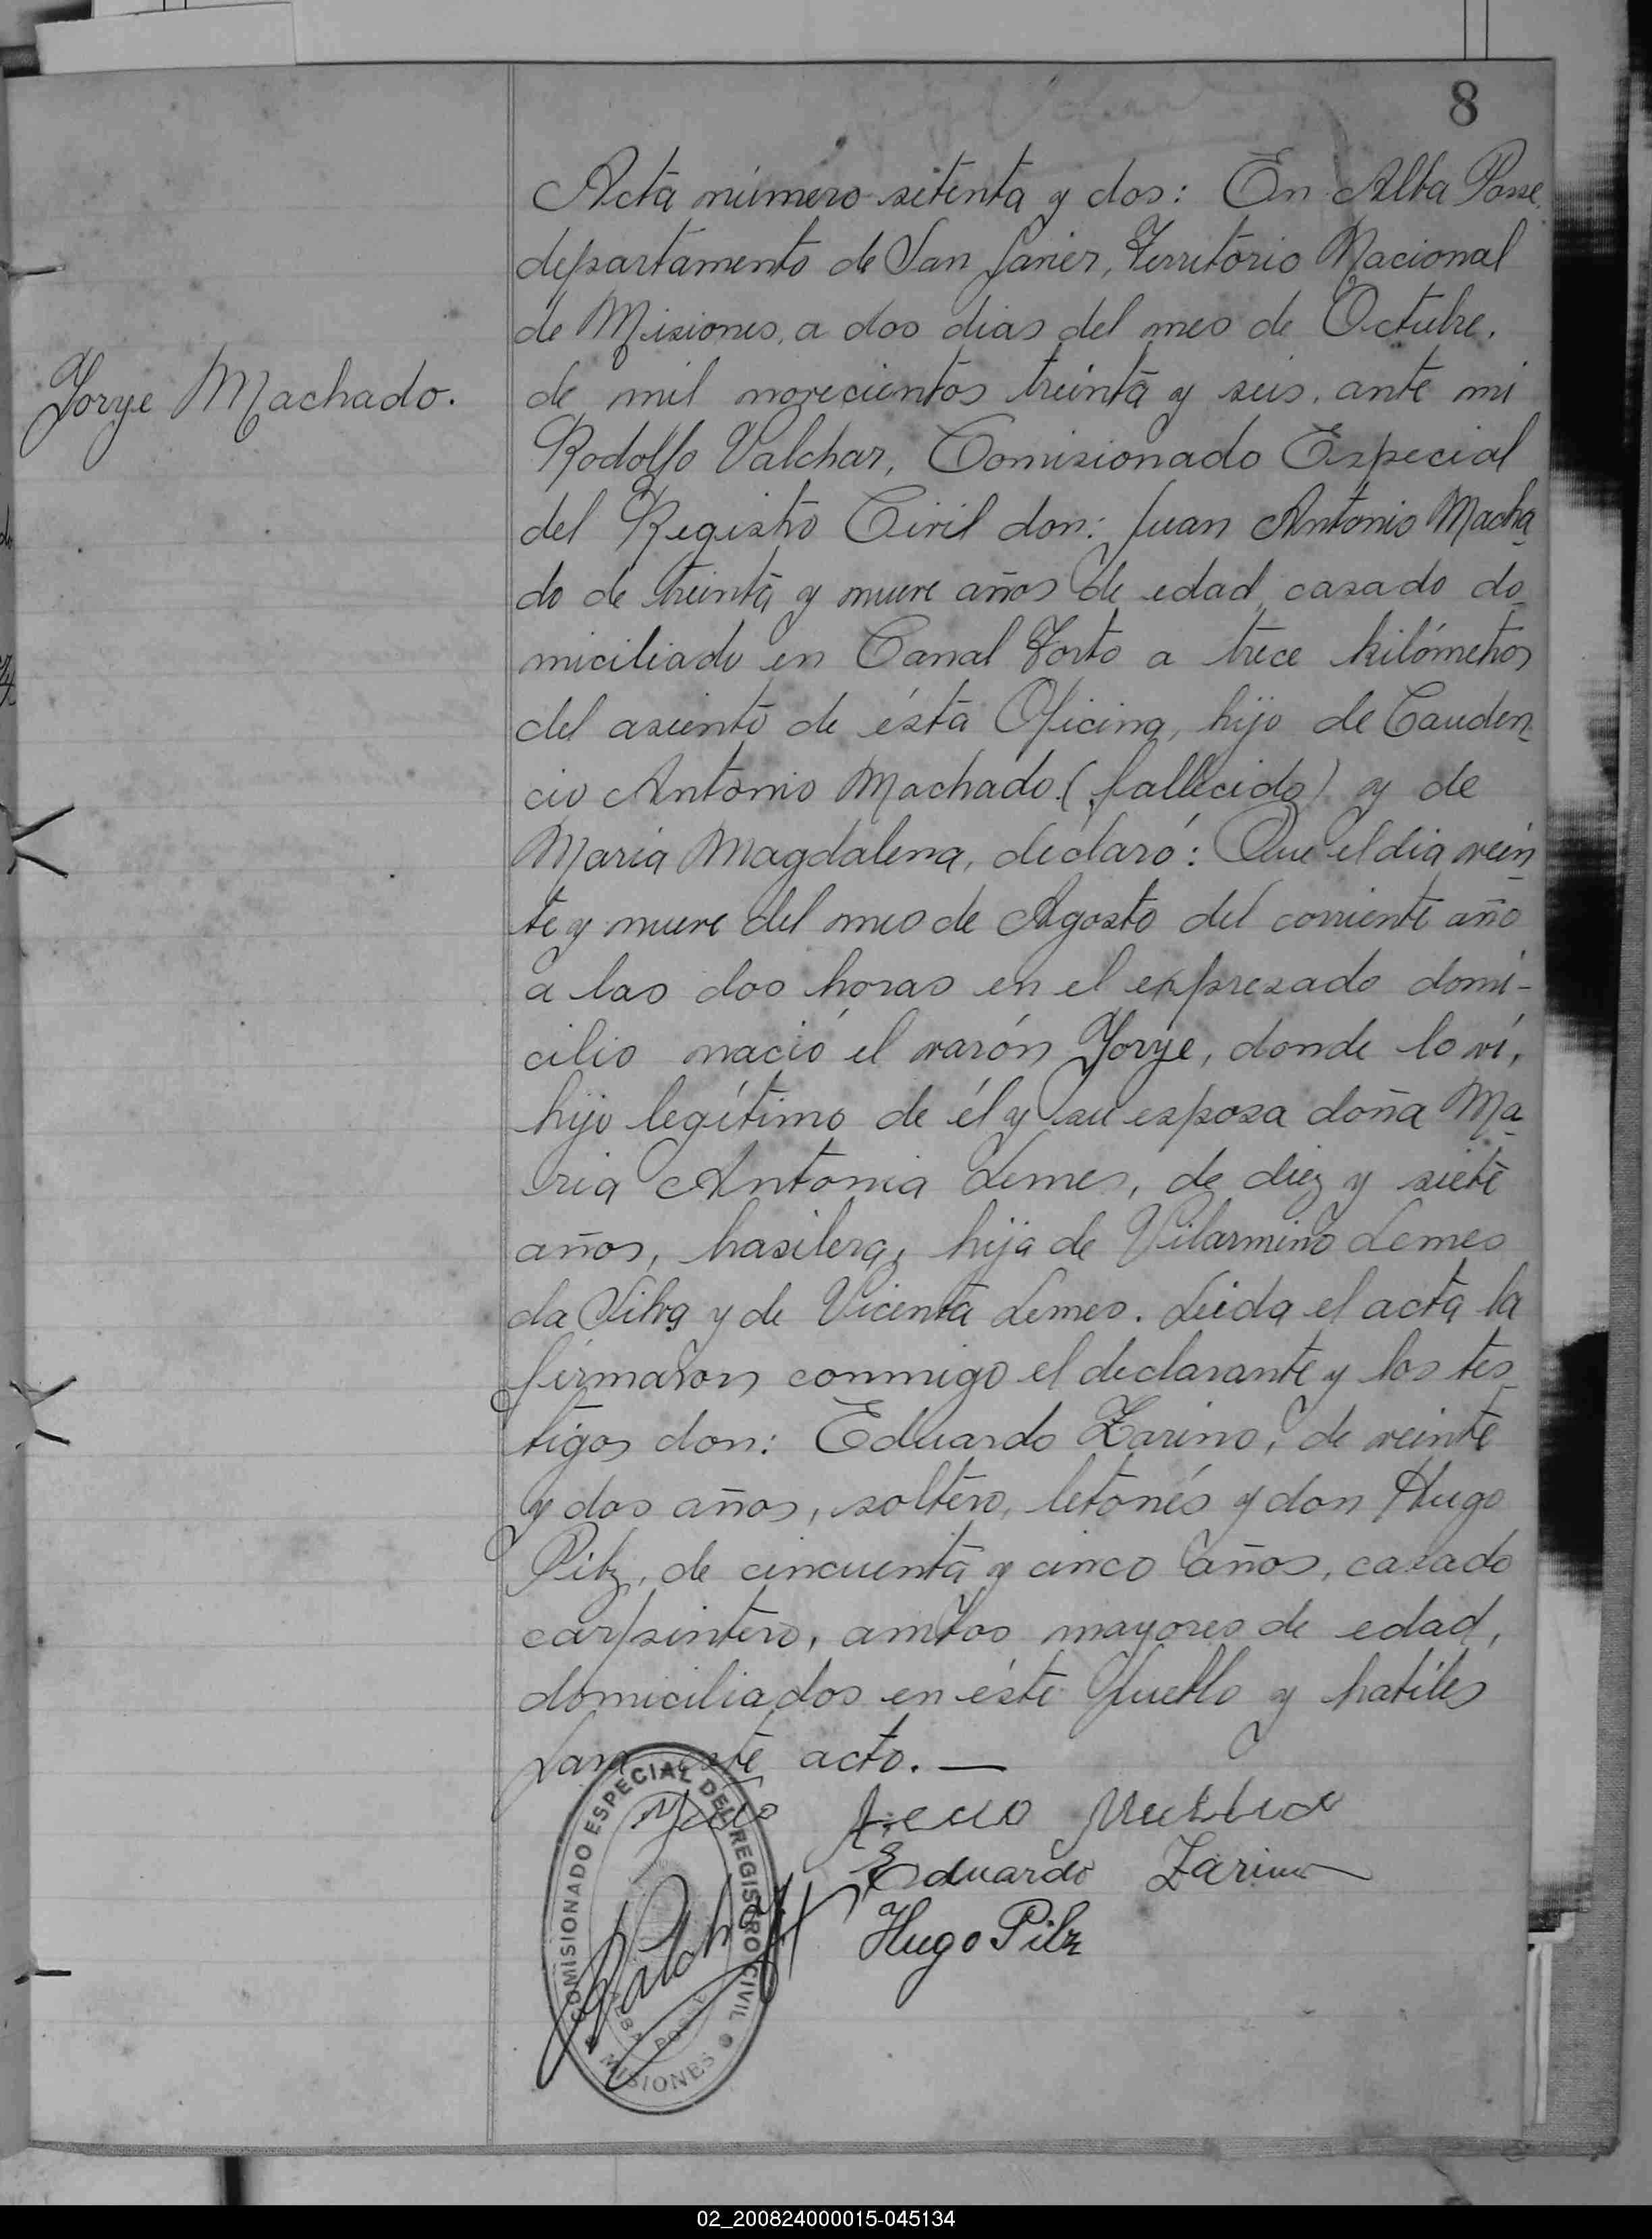 8
Acta número setenta y dos: En Alba Posse,
departamento de San Javier, Territorio Nacional
de Misiones, a dos dias del mes de Octubre,
Jorge Machado.
de mil novecientos treinta y seis, ante mi
Rodolfo Valchar, Comisionado Especial
del Registro Civil don: Juan Antonio Macha-
do de treinta y nueve años de edad, casado do-
miciliado en Canal Torto a trece kilómetros
del asiento de ésta Oficina, hijo de Gauden-
cio Antonio Machado (fallecido) y de
Maria Magdalena, declaró: Que el dia vein-
te y nueve del mes de Agosto del corriente año
a las dos horas en el expresado domi-
cilio nació el varón Jorge, donde lo ví,
hijo legítimo de él y su esposa doña Ma-
ria Antonia Lemes, de diez y siete
años, brasilera, hija de Vilarmino Lemes
da Silva y de Vicenta Lemes. Leida el acta la
firmaron conmigo el declarante y los tes-
tigos don: Eduardo Zarino, de veinte
y dos años, soltero, letonés y don Hugo
Pilz, de cincuenta y cinco años, casado
carpintero, ambos mayores de edad,
domiciliados en éste pueblo y habiles
para este acto.—
Eduardo Zarino
Hugo Pilz
COMISIONADO ESPECIAL DEL REGISTRO CIVIL
ALBA POSSE
MISIONES
02_200824000015-045134